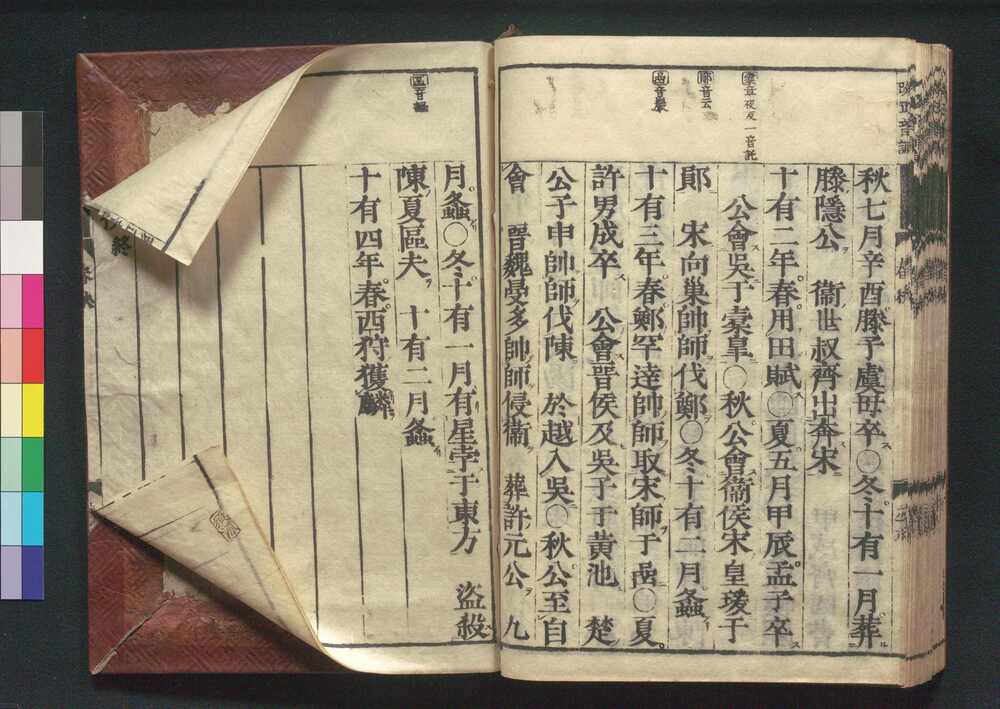 秋七月辛酉滕子虞母卒○冬十有一月葬
滕隱公　衞世叔齊出奔宋
十有二年春用田賦○夏五月甲辰孟子卒
公會吳于橐皐○秋公會衞侯宋皇瑗于
鄖　宋向巢帥師伐鄭○冬十有二月螽
十有三年春鄭罕達帥師取宋師于嵒○夏
許男成卒　公會晉侯及吳子于黃池　楚
公子申帥師伐陳　於越入吳○秋公至自
會　晉魏曼多帥師侵衞　葬許元公　九
月螽○冬十有一月有星孛于東方　盜殺
陳夏區夫　十有二月螽
十有四年春西狩獲麟
橐章夜反一音託
鄖音云
嵒音巖
區音軀
終